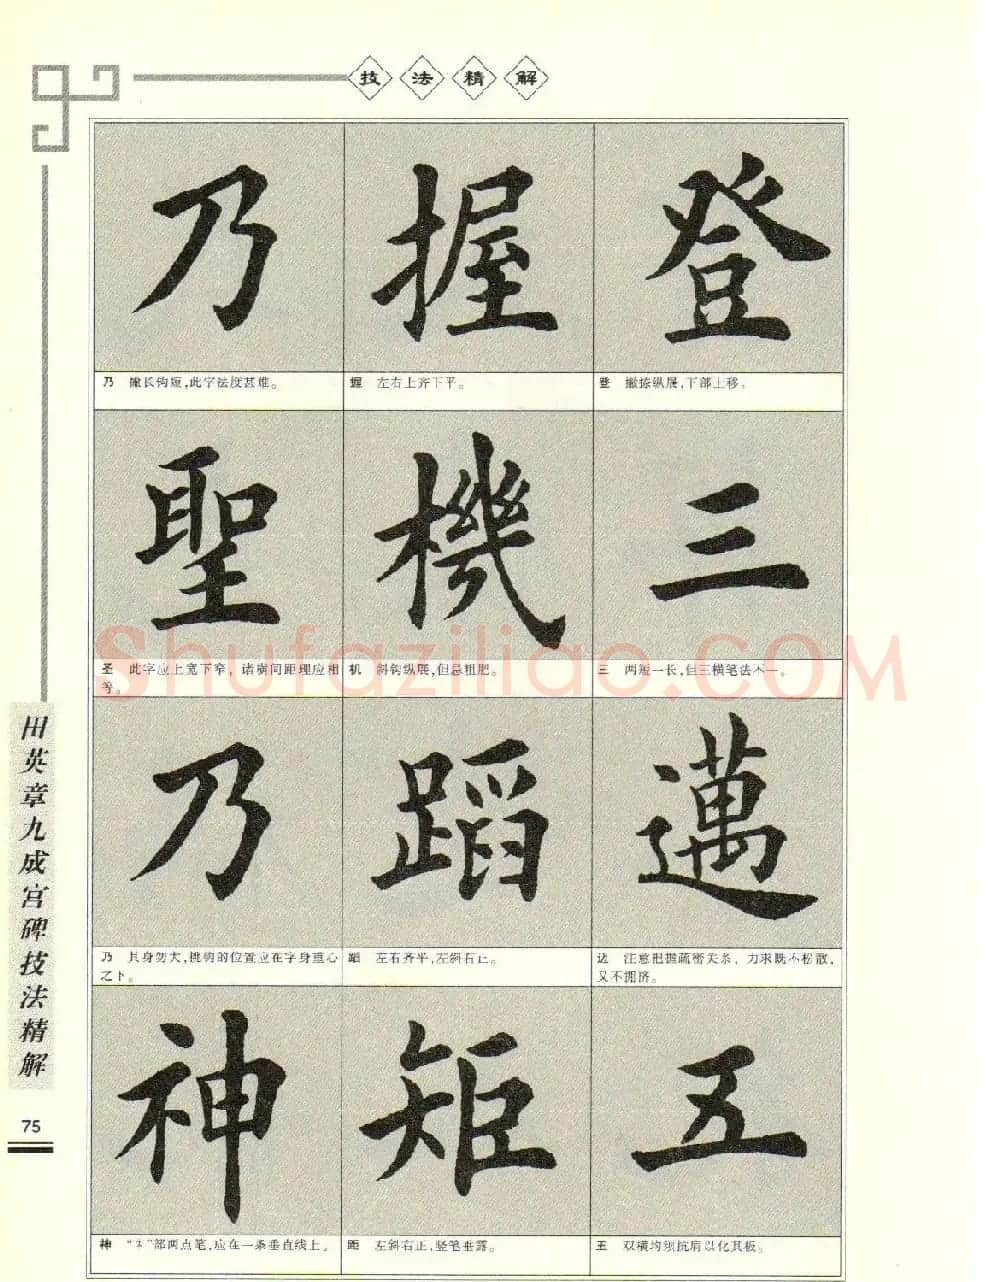 技法精解
乃 握 登
乃 撇长钩短,此字法度甚难。
握 左右上齐下平。
登 撇捺纵展,下部上移。
聖 機 三
圣 此字应上宽下窄,诸横间距理应相
等。
机 斜钩纵展,但忌粗肥。
三 两短一长,但三横笔法不一。
乃 蹈 邁
乃 其身勿大,挑钩的位置应在字身重心
之下。
蹈 左右齐平,左斜右正。
迈 注意把握疏密关系,力求既不松散,
又不拥挤。
神 矩 五
神 “礻”部两点笔,应在一条垂直线上。
距 左斜右正,竖笔垂露。
五 双横均须抗肩以化其板。
田英章九成宫碑技法精解
75
Shufaziliao.COM